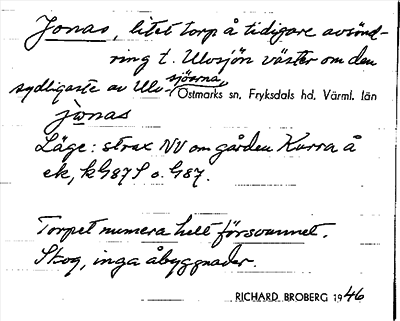 Jonas, litet torp å tidigare avsönd-
ring t. Ulvsjön väster om den
sydligaste av Ulv-sjöarna,
Östmarks sn, Fryksdals hd, Värml. län
jònas
Läge: strax NV om gården Kurra å
ek, kG87S o. G87.
Torpet numera helt försvunnet.
Skog, inga åbyggnader.
RICHARD BROBERG 1946